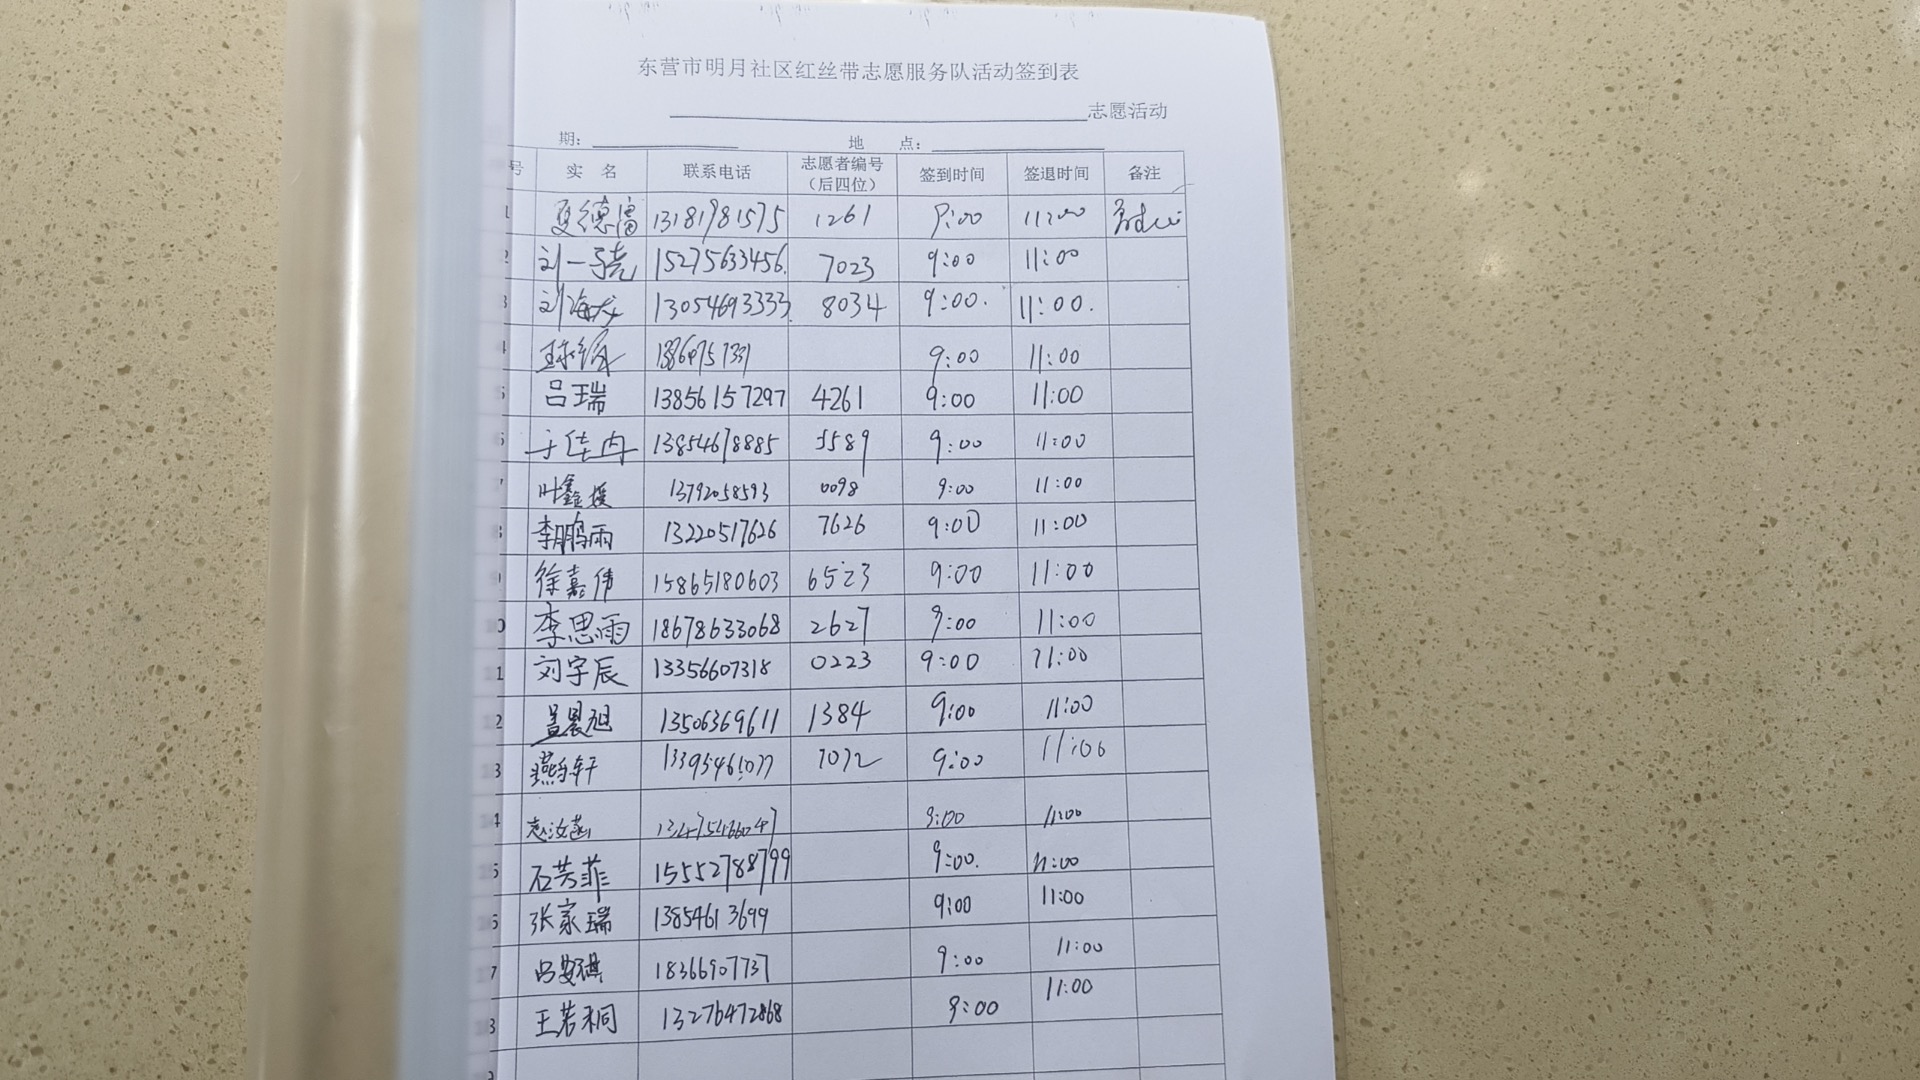 东营市明月社区红丝带志愿服务队活动签到表
志愿活动
期： 地 点：
号 实 名 联系电话 志愿者编号（后四位） 签到时间 签退时间 备注
1 夏德富 13181981575 1261 9:00 11:00
2 刘一 15275633456 7023 9:00 11:00
3 刘海龙 13054693333 8034 9:00. 11:00.
9:00 11:00
吕瑞 13856157297 4261 9:00 11:00
于佳冉 13854678885 5589 9:00 11:00
叶鑫 13792058593 0098 9:00 11:00
李鹏雨 13220517626 7626 9:00 11:00
徐嘉伟 15865180603 6523 9:00 11:00
10 李思雨 18678633068 2627 9:00 11:00
1 刘宇辰 13356607318 0223 9:00 11:00
2 盖晨旭 13506369611 1384 9:00 11:00
3 燕 轩 13395461077 7072 9:00 11:00
4 赵汝菡 13475466047 9:00 11:00
5 石芳菲 15552788799 9:00. 11:00
6 张家瑞 13854613699 9:00 11:00
7 吕安祺 18366907737 9:00 11:00
8 王若桐 13276472868 9:00 11:00